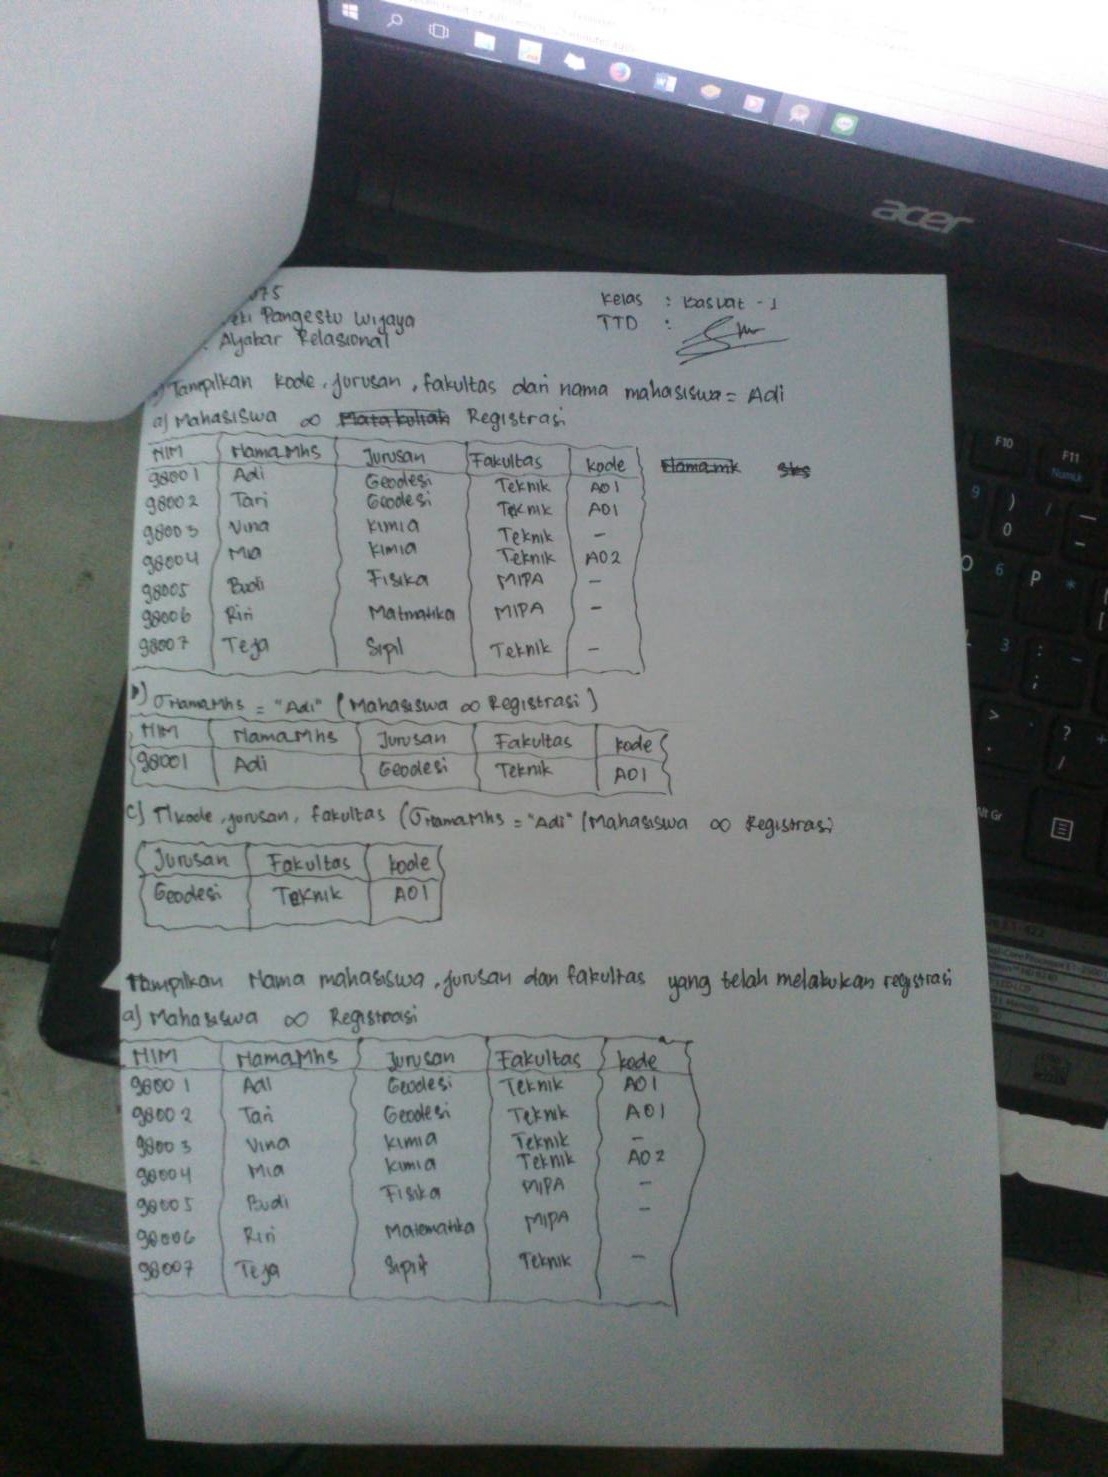 acer
F10
F11
075
Kelas : Basdat - 1
eki Pangestu Wijaya
TTD :
: Aljabar Relasional
Tampilkan kode, jurusan, fakultas dari nama mahasiswa = Adi
a) Mahasiswa ∞ Matakuliah Registrasi
NIM NamaMhs Jurusan Fakultas kode Namamk Sks
98001 Adi Geodesi Teknik A01
98002 Tari Geodesi Teknik A01
98003 Vina Kimia Teknik -
98004 Mia Kimia Teknik A02
98005 Budi Fisika MIPA -
98006 Riri Matmatika MIPA -
98007 Teja Sipil Teknik -
b) σNamaMhs = "Adi" (Mahasiswa ∞ Registrasi)
NIM NamaMhs Jurusan Fakultas kode
98001 Adi Geodesi Teknik A01
c) π kode, jurusan, fakultas (σNamaMhs = "Adi" (Mahasiswa ∞ Registrasi
Jurusan Fakultas kode
Geodesi Teknik A01
Tampilkan Nama mahasiswa, jurusan dan fakultas yang telah melakukan registrasi
a) Mahasiswa ∞ Registrasi
NIM NamaMhs Jurusan Fakultas kode
98001 Adi Geodesi Teknik A01
98002 Tari Geodesi Teknik A01
98003 Vina Kimia Teknik -
98004 Mia Kimia Teknik A02
98005 Budi Fisika MIPA -
98006 Riri Matematika MIPA -
98007 Teja Sipil Teknik -